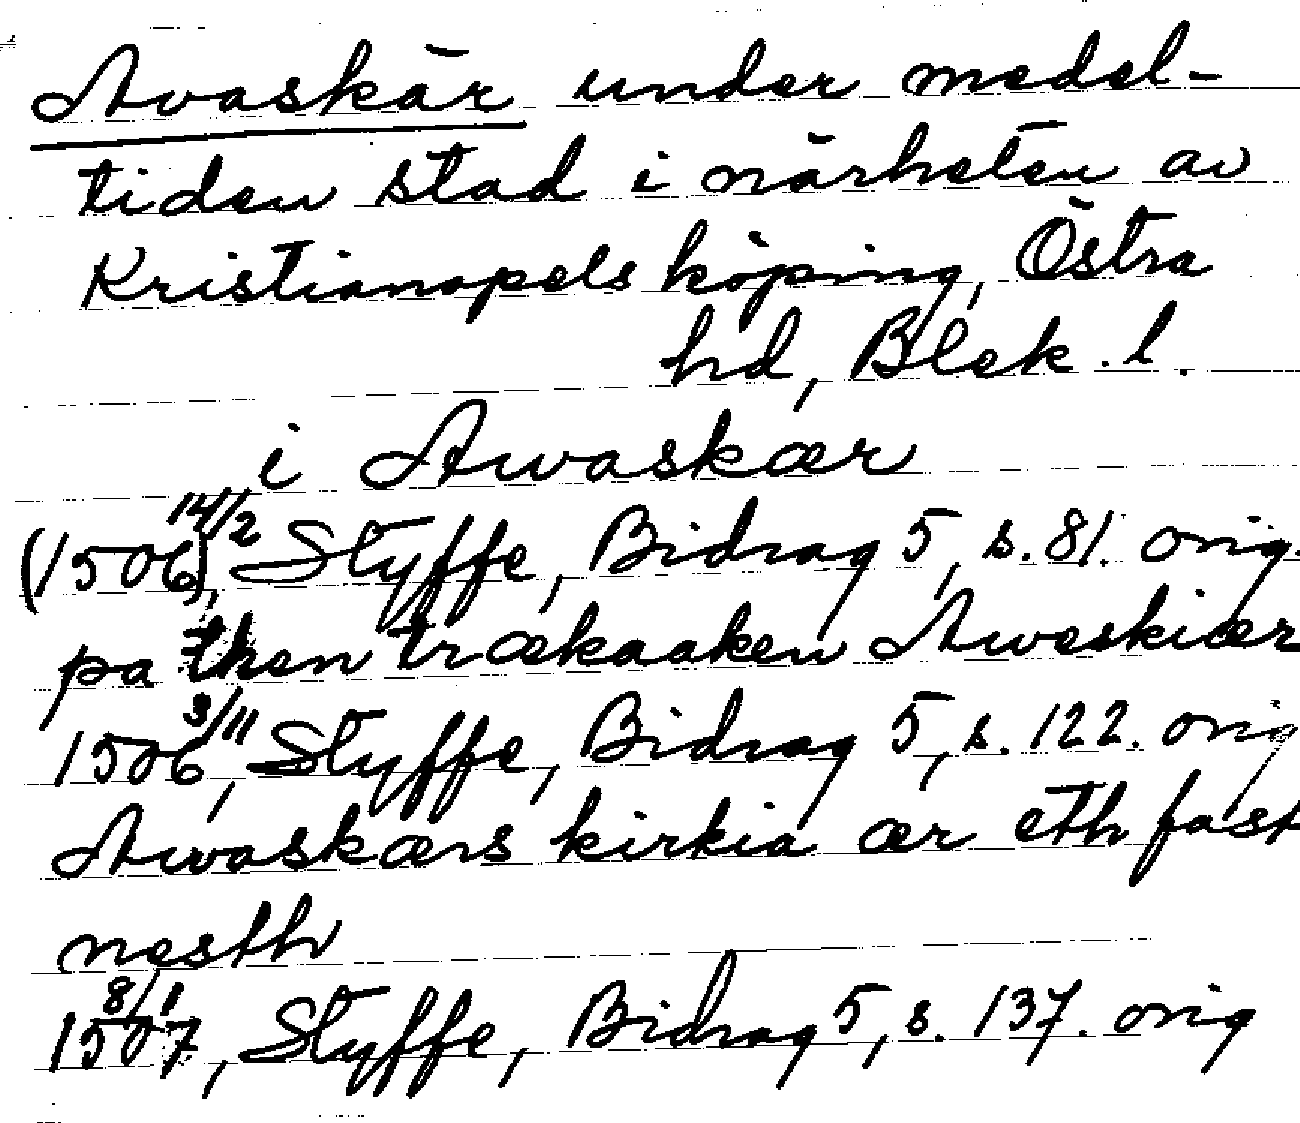 Avaskär under medel-
tiden stad i närheten av
Kristianopels köping, Östra
hd, Blek. l.
i Awaskær
(1506) 14/2, Styffe, Bidrag 5, s. 81. orig.
pa then trækaaken Aweskiær
1506 3/11, Styffe, Bidrag 5, s. 122. orig
Awaskærs kirkia ær eth fast
nesth
1507 8/1, Styffe, Bidrag 5, s. 137. orig